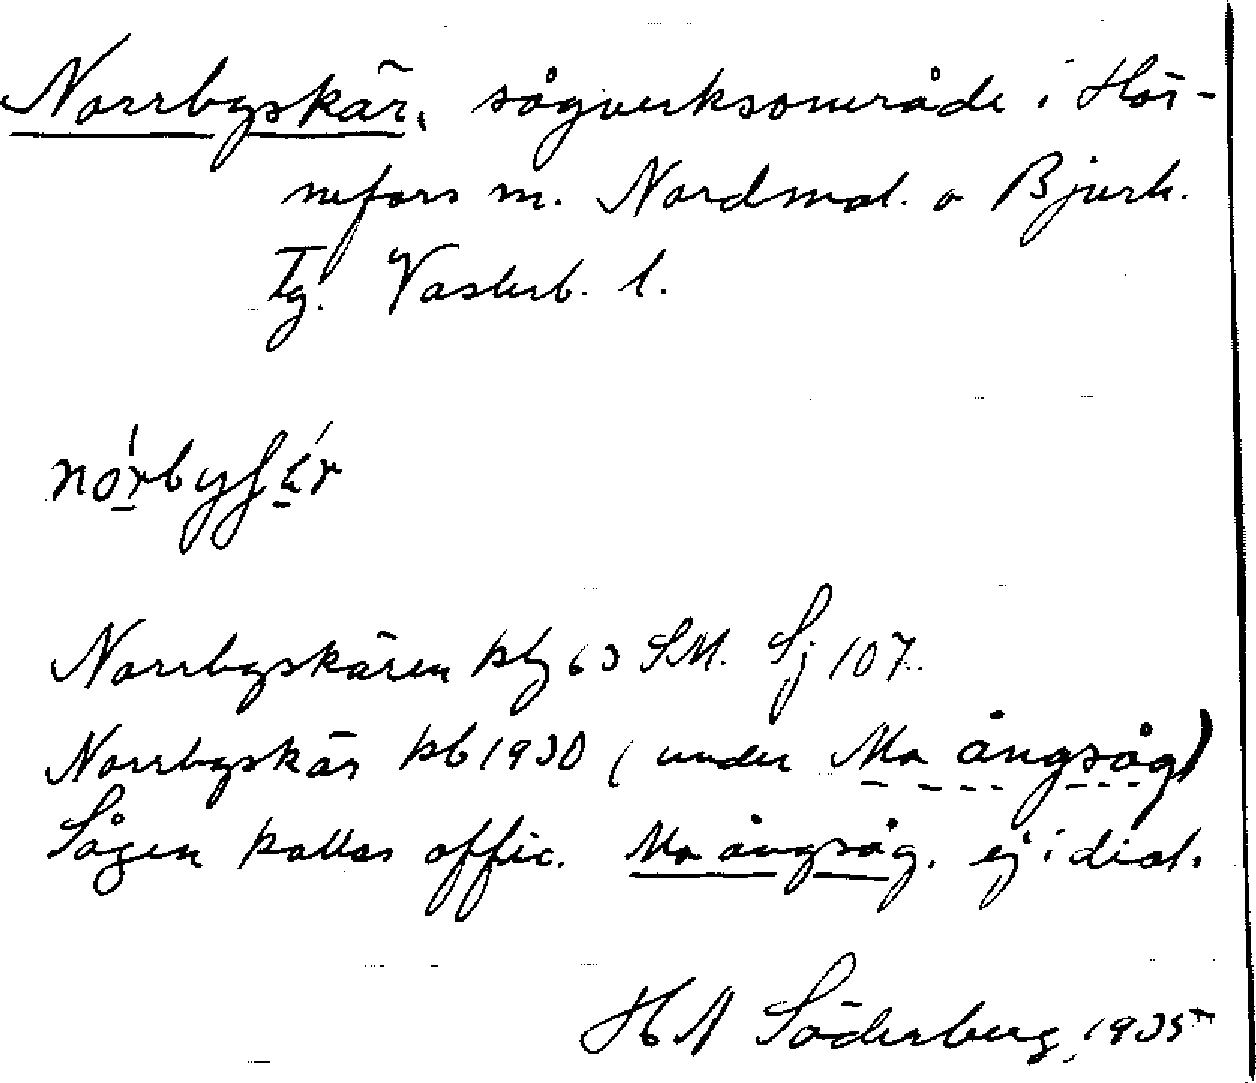 Norrbyskär, sågverksområde i Hör-
nefors m. Nordmal. o Bjurh.
Tg. Västerb. l.
Norrbyskären kbl 63 SM. Sj 107.
Norrbyskär kb 1930 (under Mo ångsåg)
Sågen kallas offic. Mo ångsåg. ej i dial.
H A Söderberg, 1935